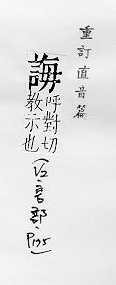 重訂直音篇
誨 呼對切
教示也 言部